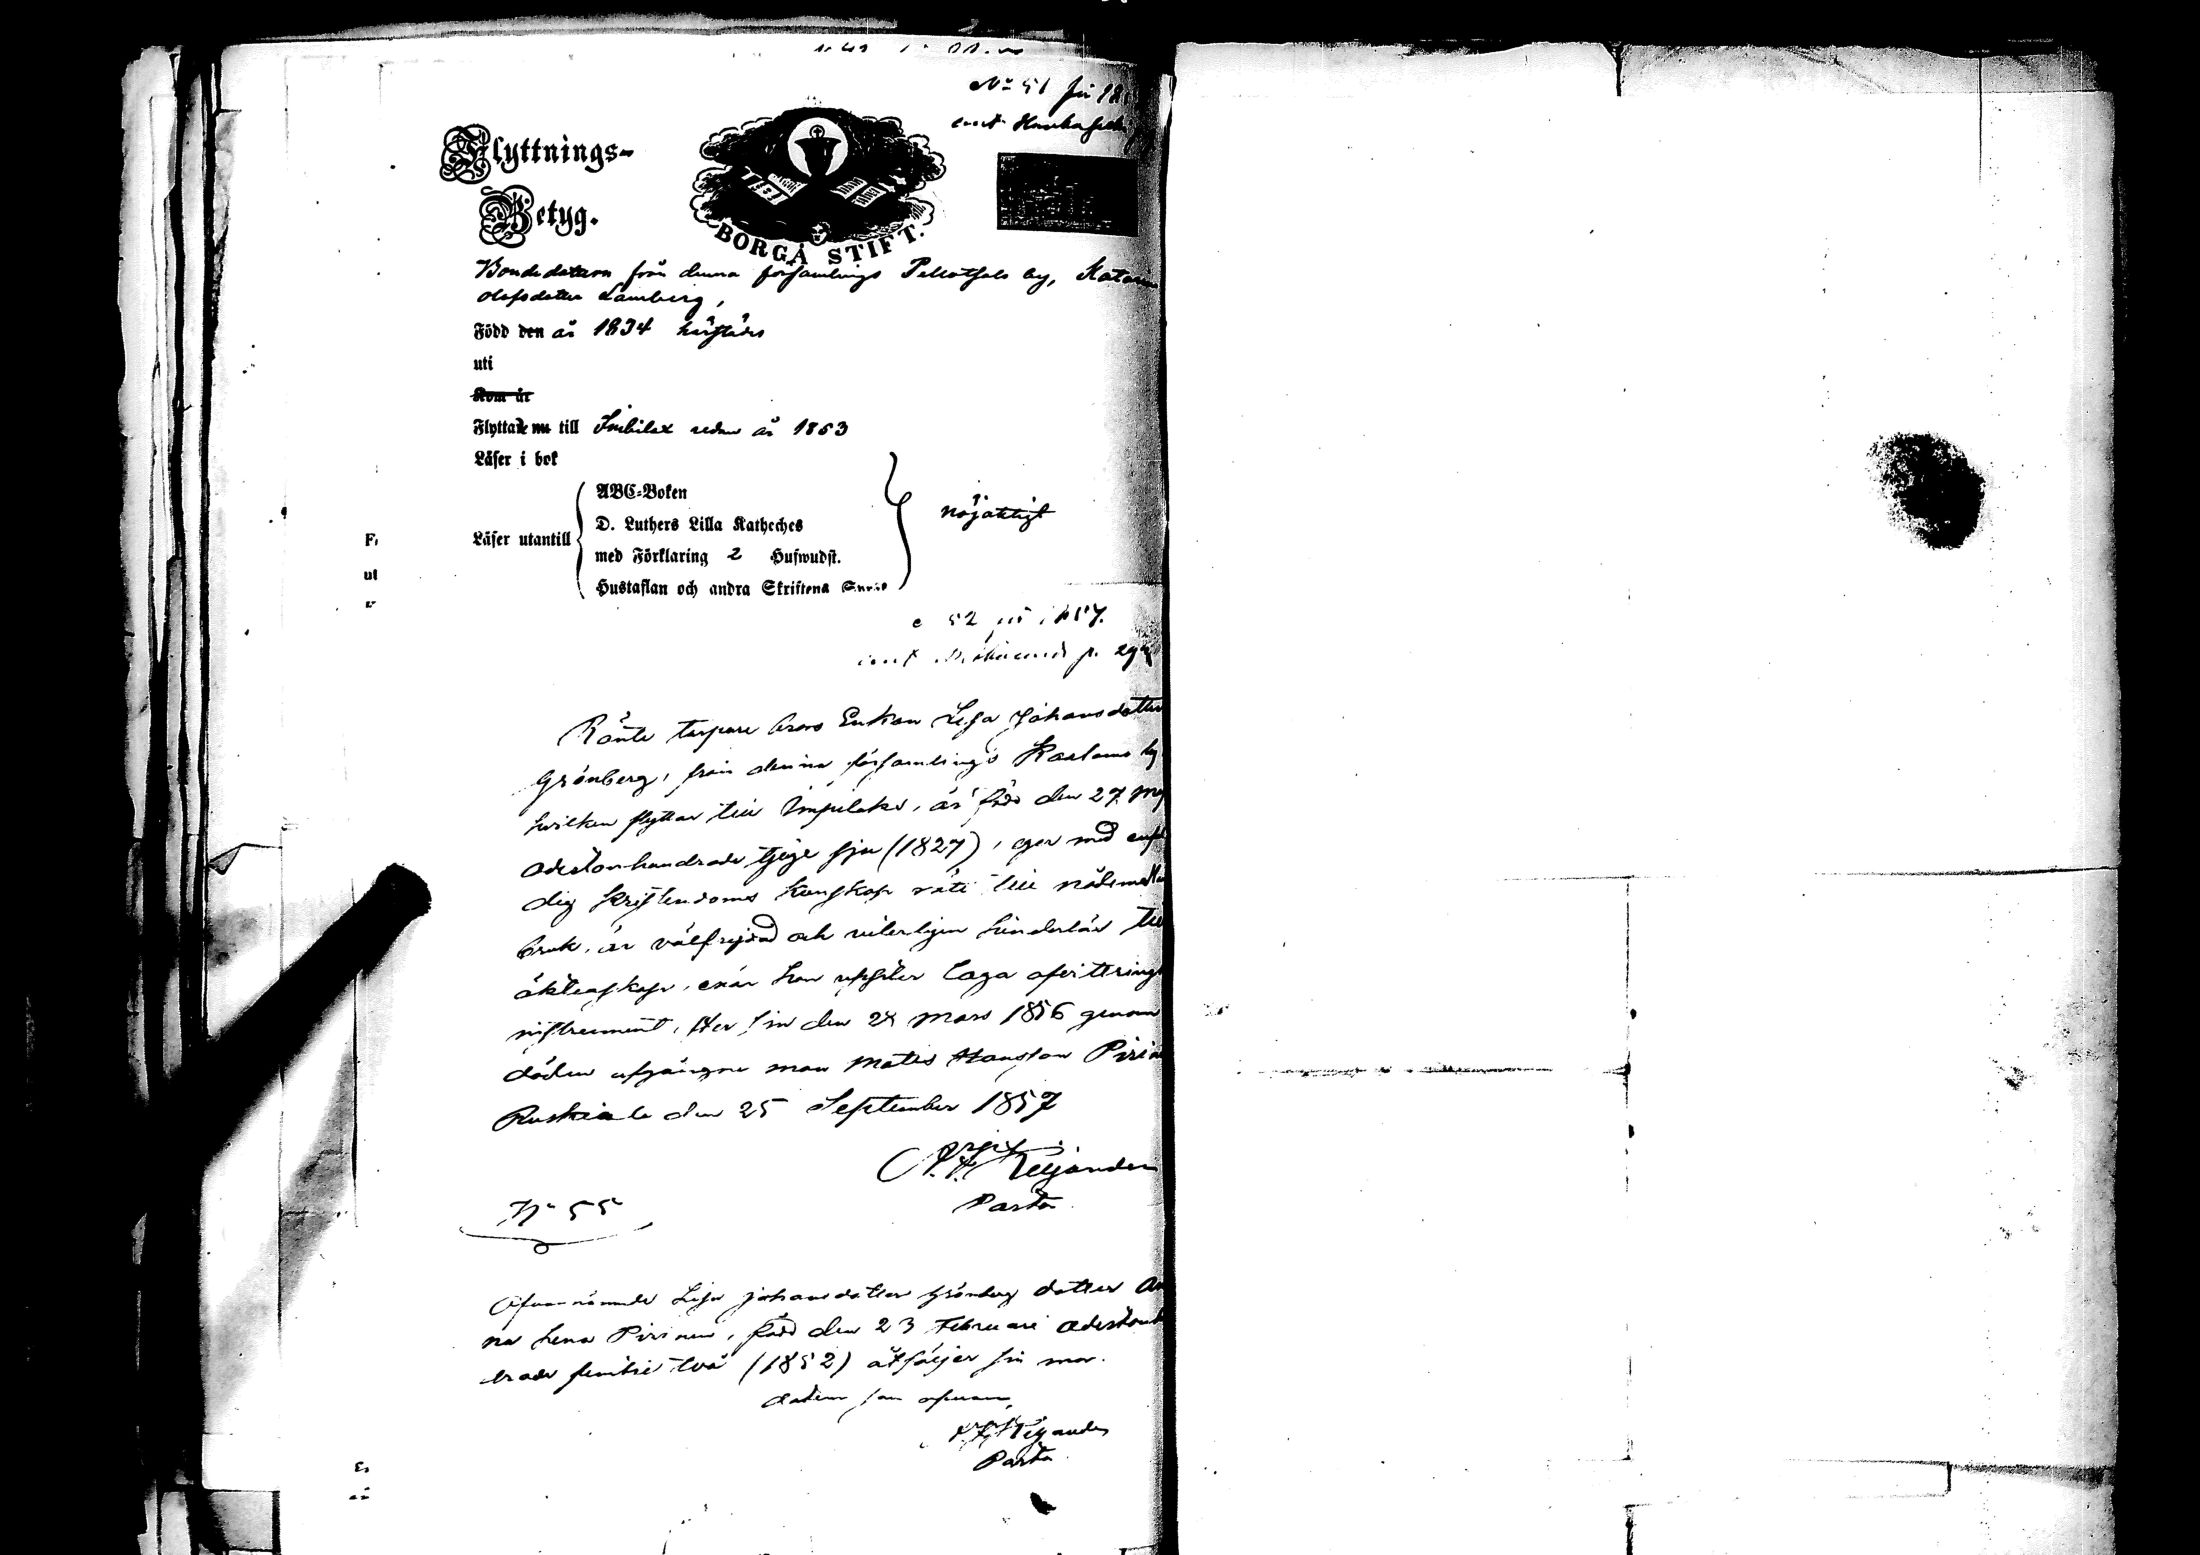 No 51 för 18
Flyttnings-
Betyg.
BORGÅ STIFT.
Bondedottern från denna församlings Pellotsalo by, Katarina
Olofsdotter Lamberg,
Född den år 1834 härstädes
uti
Kom år
Flyttade nu till Imbilax redan år 1863
Läser i bok
ABC-Boken
D. Luthers Lilla Katheches
Läser utantill
med Förklaring 2 Hufwudst.
Hustaflan och andra Skriftens
nöjaktigt
52 1857.
inf p.
Enkan Lisa Johansdotter
Grönberg, från denna församlings by
hvilken flyttar till Impilaks, är född den 27 Maj
adertonhundrade tjuge sju (1827), eger med
dig kristendoms kunskap rätt till nådemedlens
bruk, är välfrejdad och hinderlös till
äktenskap, enär hon laga afvittrings
instrument, efter sin den 28 Mars 1856 genom
döden afgångne man Mats Hansson Pirin
Ruskiala den 25 September 1857
Pastor
No 55
Ofvannämnde Lisa Johansdotter Grönberg dotter An
na Lena Pirinen, född den 23 Februari adertonhun
drade femtio två (1852) åtföljer sin mor.
datum som ofvan,
Pastor